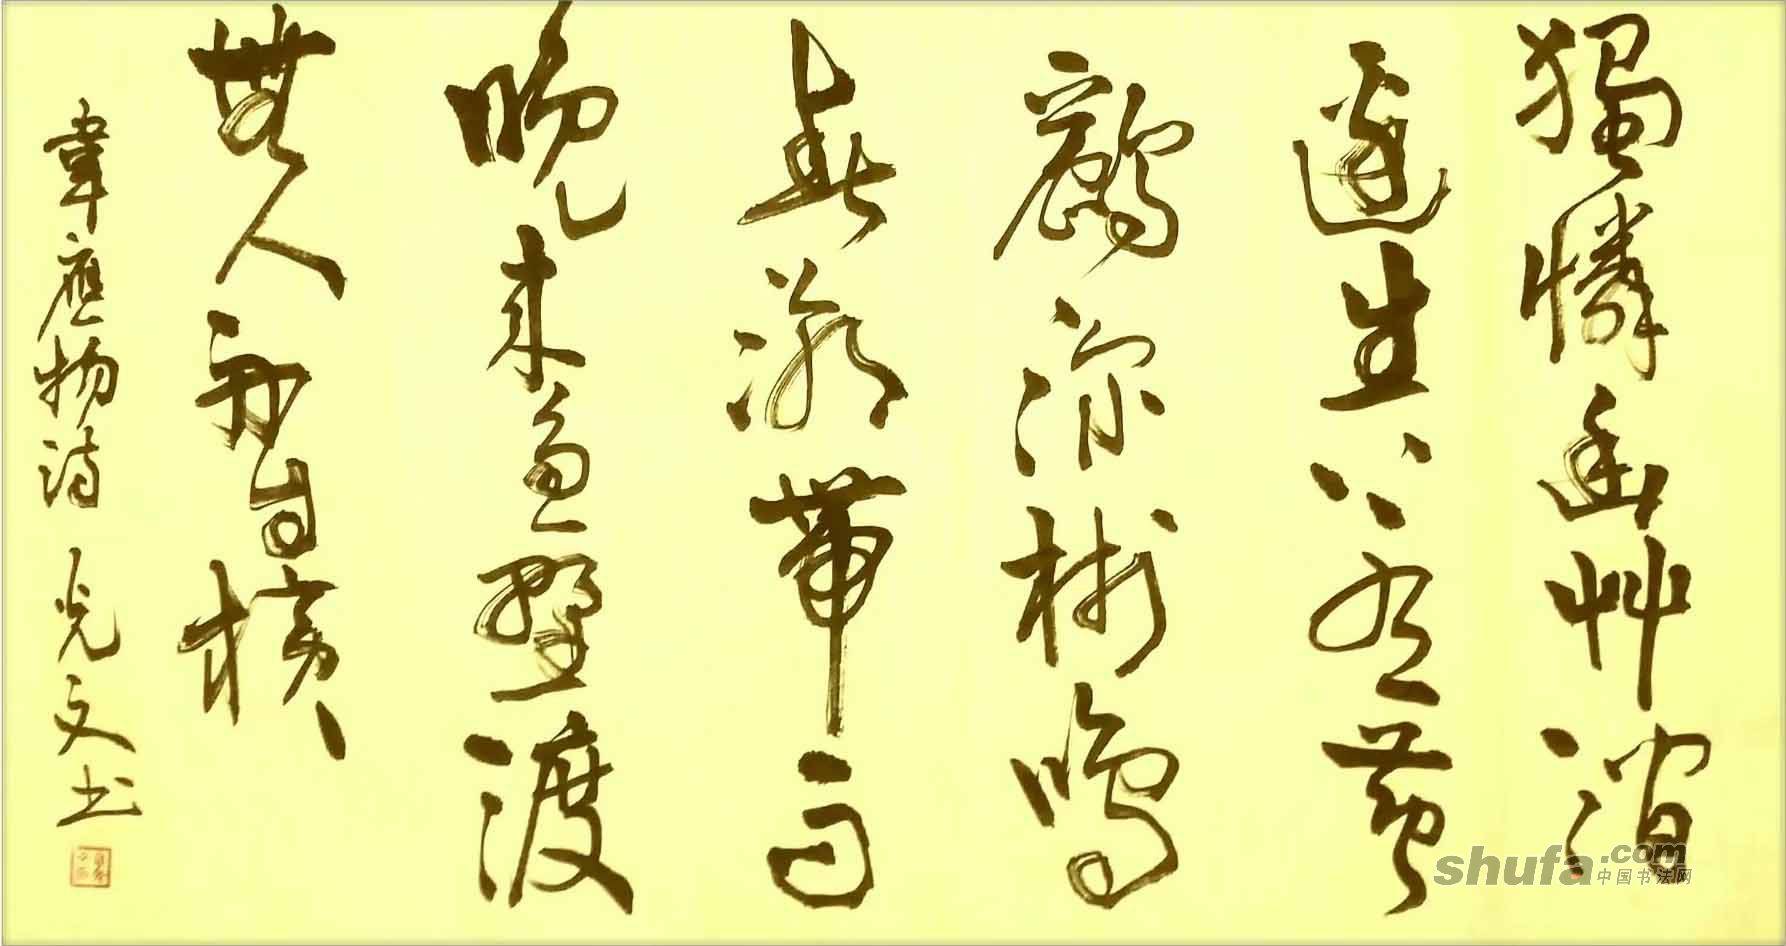 獨憐幽艸澗
邊生上有黃
鸝深樹鳴
春潮帶雨
晚來急野渡
無人舟自橫
韋應物詩 光文书
shufa.com
中国书法网